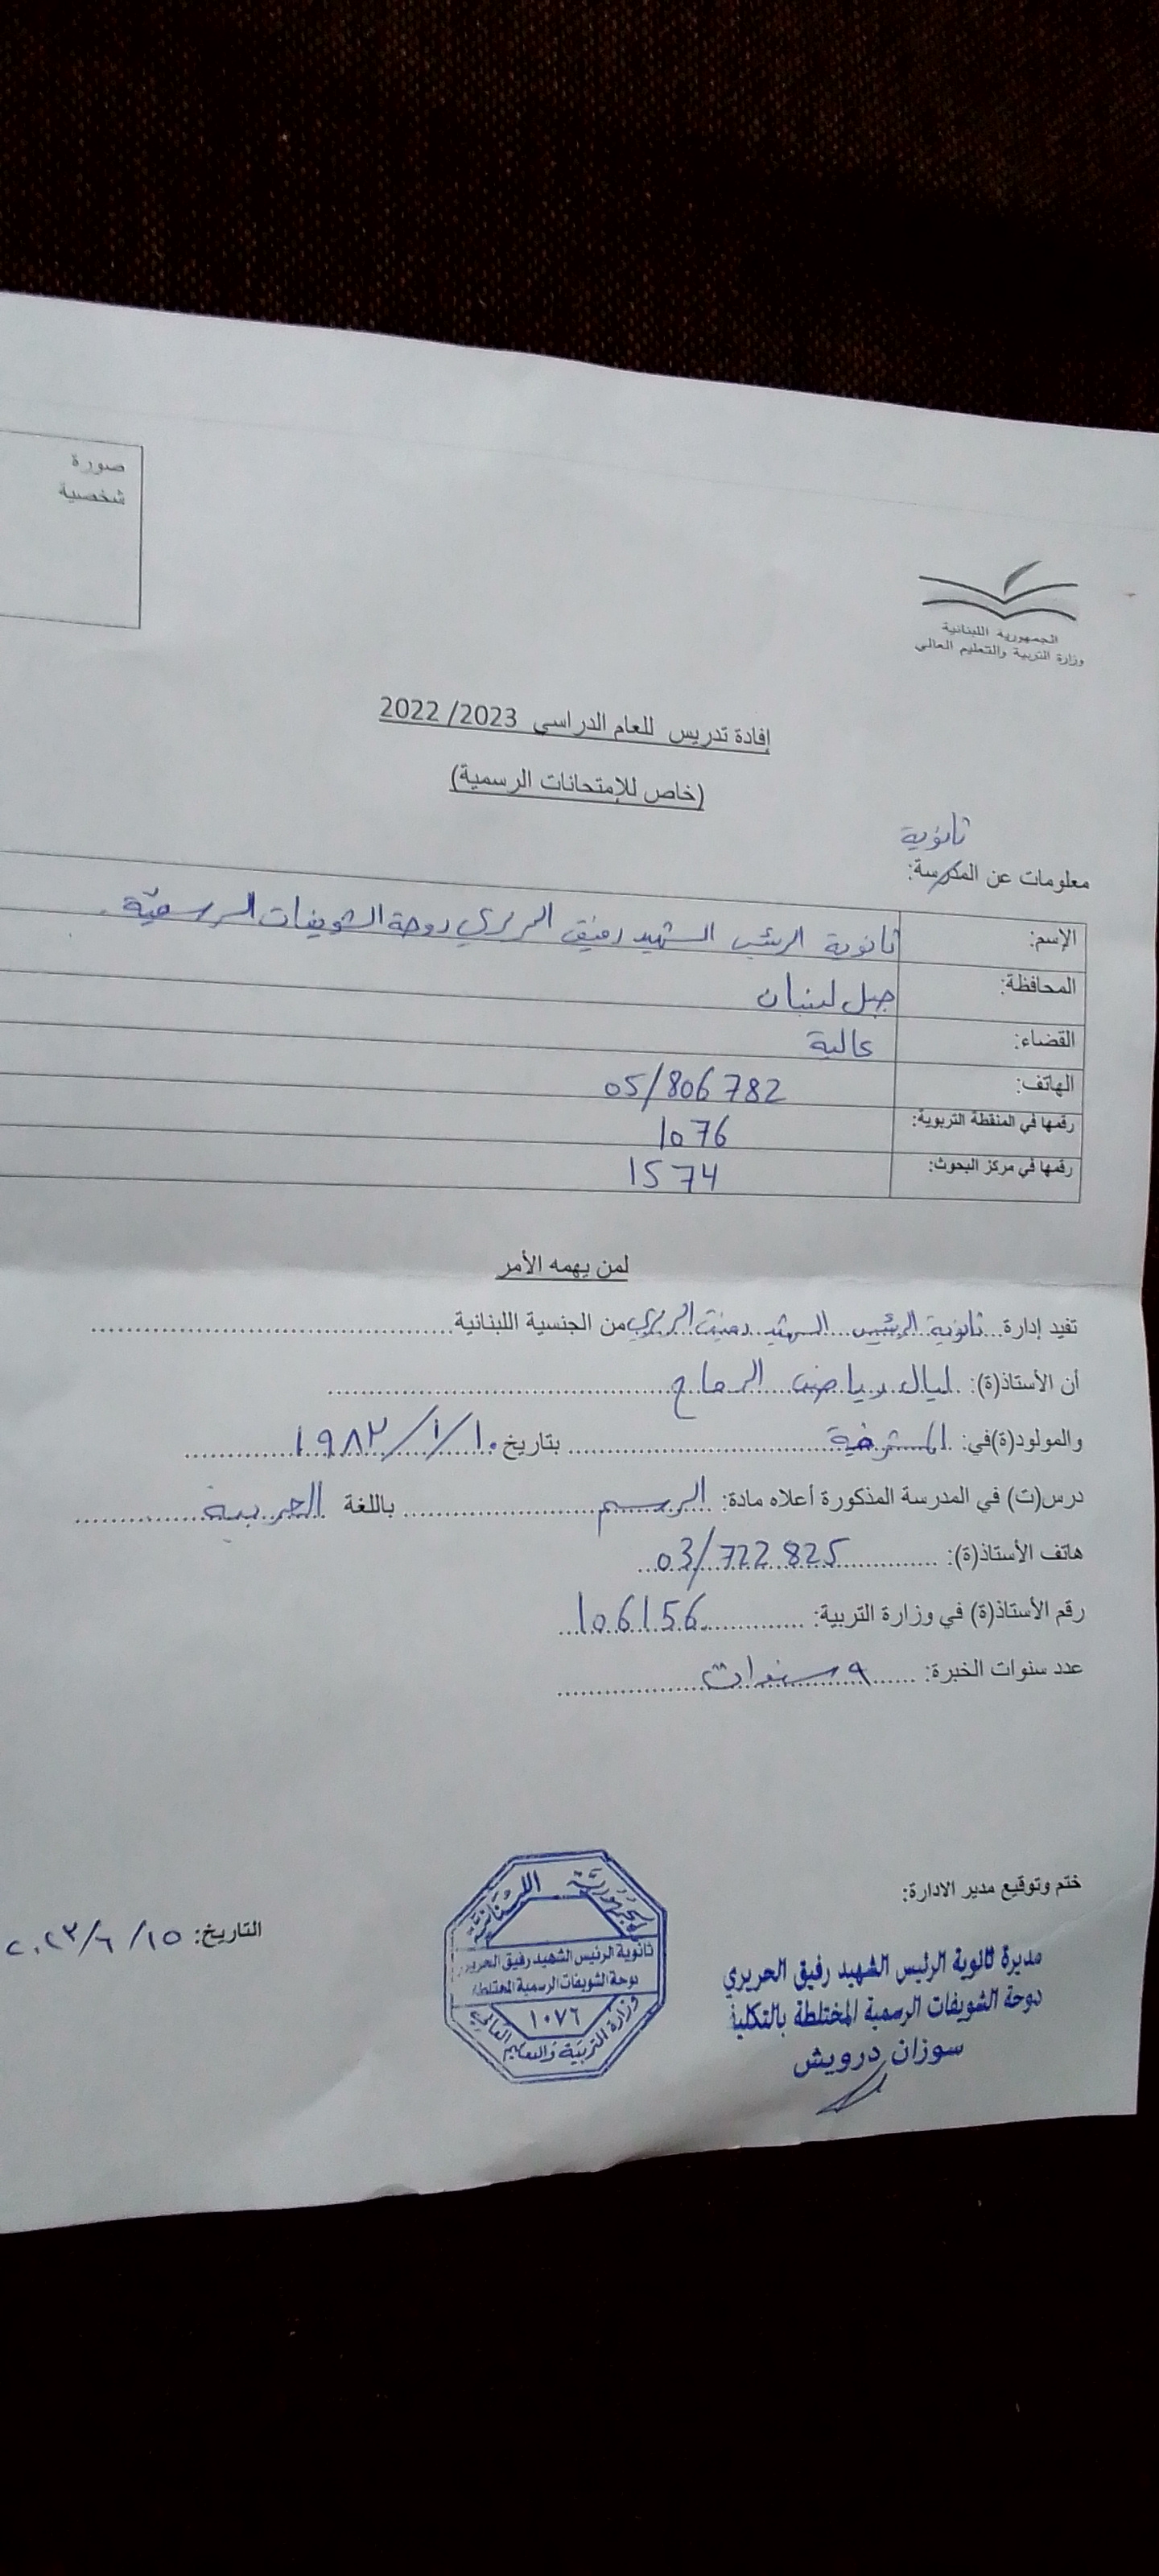 صورة
شخصية
الجمهورية اللبنانية
وزارة التربية والتعليم العالي
إفادة تدريس للعام الدراسي 2022/2023
(خاص للإمتحانات الرسمية)
ثانوية
معلومات عن المدرسة:
الإسم: ثانوية الرئيس الشهيد رفيق الحريري دوحة الشويفات الرسمية
المحافظة: جبل لبنان
القضاء: عالية
الهاتف: 05/806782
رقمها في المنقطة التربوية: 1076
رقمها في مركز البحوث: 1574
لمن يهمه الأمر
تفيد إدارة ثانوية الرئيس الشهيد رفيق الحريري من الجنسية اللبنانية
أن الأستاذ(ة): ليال رياض الرماح
والمولود(ة)في: المشرفية بتاريخ ١٠/١/١٩٨٢
درس(ت) في المدرسة المذكورة أعلاه مادة: الرسم باللغة العربية
هاتف الأستاذ(ة): 03/722825
رقم الأستاذ(ة) في وزارة التربية: 106156
عدد سنوات الخبرة: ٩ سنوات
ختم وتوقيع مدير الادارة:
التاريخ: ١٥/٦/٢٠٢٣
مديرة ثانوية الرئيس الشهيد رفيق الحريري
دوحة الشويفات الرسمية المختلطة بالتكليف
سوزان درويش
الجمهورية اللبنانية
ثانوية الرئيس الشهيد رفيق الحريري
دوحة الشويفات الرسمية المختلطة
١٠٧٦
وزارة التربية والتعليم العالي